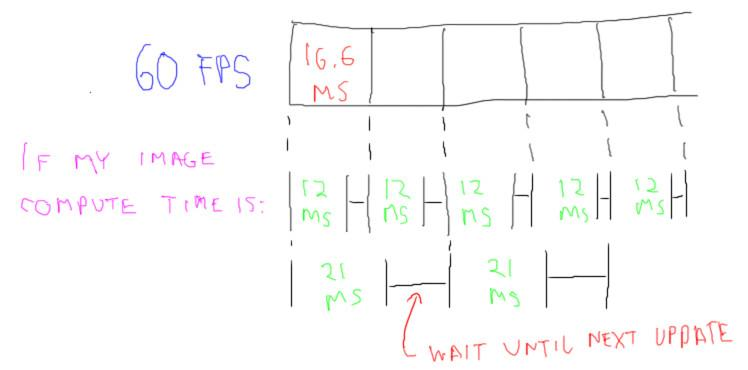 60 FPS
16.6
MS
IF MY IMAGE
COMPUTE TIME IS:
12 MS
12 MS
12 MS
12 MS
12 MS
21 MS
21 MS
WAIT UNTIL NEXT UPDATE